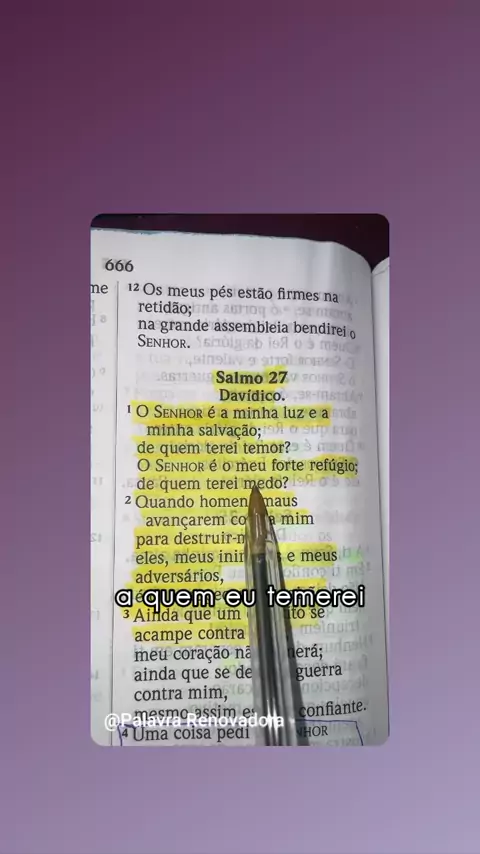 666
me
12 Os meus pés estão firmes na
retidão;
na grande assembleia bendirei o
SENHOR.
Salmo 27
Davídico.
1 O SENHOR é a minha luz e a
minha salvação;
de quem terei temor?
O SENHOR é o meu forte refúgio;
de quem terei medo?
2 Quando homen maus
avançarem co a mim
para destruir-m
eles, meus inim s e meus
adversários,
a quem eu temerei
3 Ainda que um ito se
acampe contra
meu coração nã erá;
ainda que se de guerra
contra mim,
mesmo assim e confiante.
@Palavra Renovadora
4 Uma coisa pedi NHOR